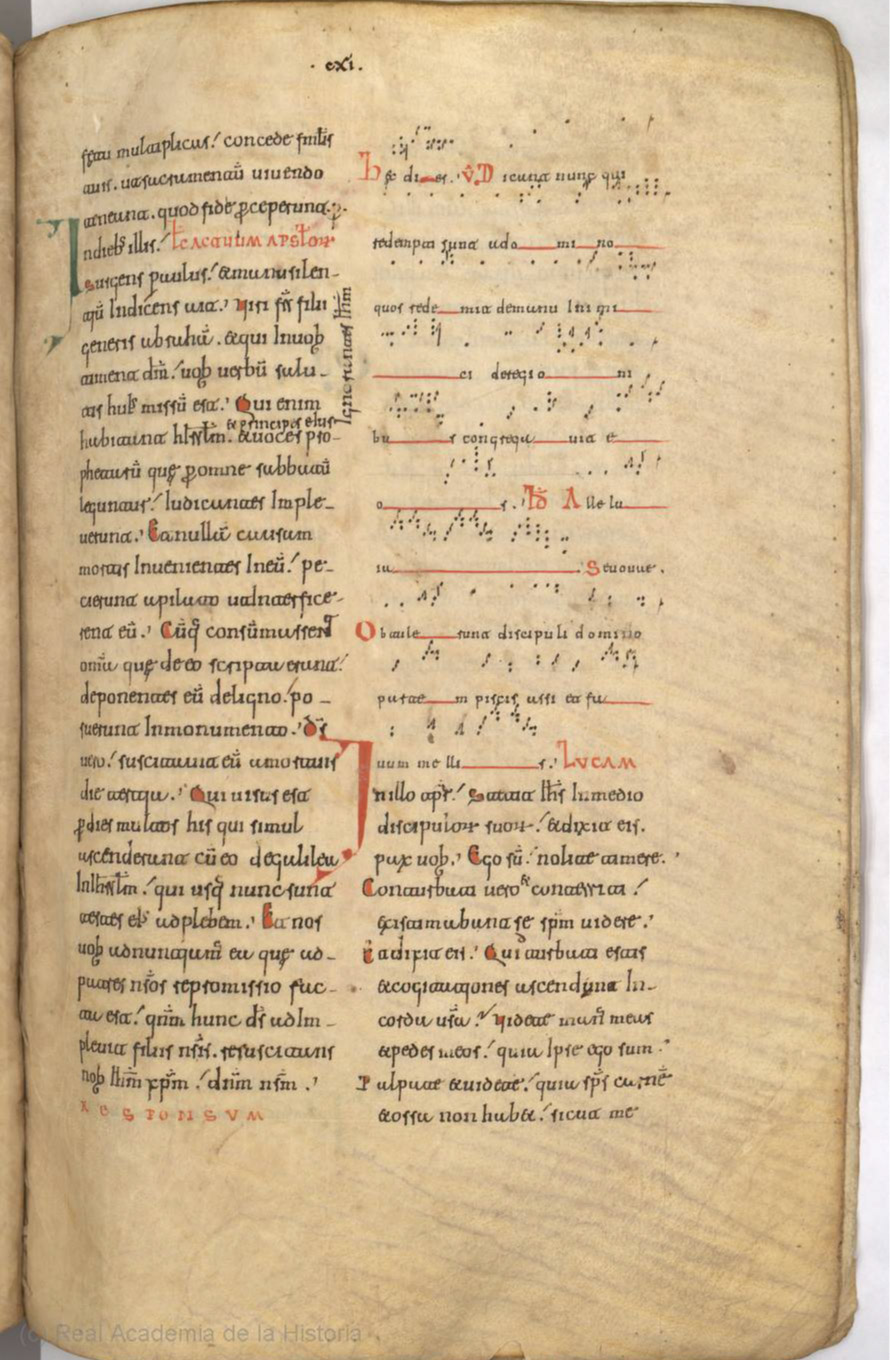 · cxi.
multiplicas. concede
uiuendo
quod fide perceperunt.
In dieb; illis. LC ACTUUM APSTOR
Surgens paulus. & manu silen-
tiū Indicens ait. Uiri fr̄s filii
generis abrahā. & qui In uob
timent dm̄. uob uerbū salu-
tis hui; missū est. Qui enim
habitant hIrslm̄. & principes eius
Ignorantes Ihm
& uoces pro-
phetarū quę p omne sabbatū
leguntur. Iudicantes Imple-
uerunt. Et nullā causam
mortis Inuenientes In eū. pe-
tierunt a pilato ut Interfice-
rent eū. Cūq; consūmassent
omīa quę de eo scripta erant.
deponentes eū de ligno. po-
suerunt In monumento. Ds̄
uero. suscitauit eū a mortuis
die tertia. Qui uisus est
p dies multos his qui simul
ascenderunt cū eo de galilea
In Ihrslm̄. qui usq; nunc sunt
testes ei; ad plebem. Et nos
uob adnuntiam̄ ea que ad
patres nr̄os repromissio fac-
ta est. qnm̄ hunc ds̄ adIm-
pleuit filiis nr̄is. resuscitans
nob Ihm̄ xpm̄. dnm̄ nsm̄.
RESPONSUM
hęc dies. V. Dicunt nunc qui
redempti sunt a domino
quos redemit de manu Inimi
ci de regio ni
bus congregauit e
os. Alle lu
ia Seuouae.
Obtulerunt discipuli domino
partem piscis assi et fa
uum mellis. LUCAM
In illo tpr̄. Stetit Ihs In medio
discipulor suor. & dixit eis.
pax uob. Ego sū. nolite timere.
Conturbati uero & conterriti.
existimabant se spm̄ uidere.
Et dixit eis. Quid turbati estis
& cogitationes ascendunt In
corda usā. Videte man; meas
& pedes meos. quia Ipse ego sum.
Palpate & uidete. quia sps̄ carnē
& ossa non hab&. sicut me
(c) Real Academia de la Historia